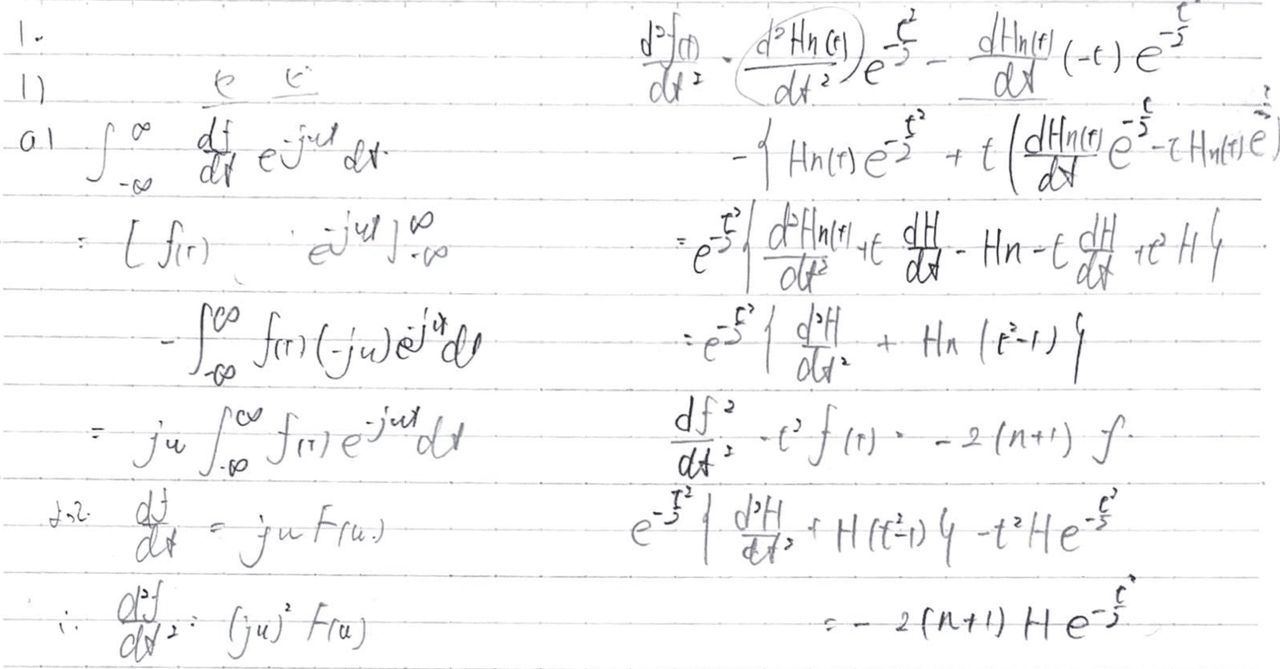 1.
1)
a)
∫_{-∞}^{∞} df/dt e^{-jut} dt.
= [ f(t) e^{-jut} ]_{-∞}^{∞}
- ∫_{-∞}^{∞} f(t) (-ju) e^{-jut} dt
= ju ∫_{-∞}^{∞} f(t) e^{-jut} dt
よって df/dt = ju F(u)
∴ d²f/dt² = (ju)² F(u)
d²f(t)/dt² = d²Hn(t)/dt² e^{-t²/2} - dHn(t)/dt (-t) e^{-t²/2}
- { Hn(t) e^{-t²/2} + t ( dHn(t)/dt e^{-t²/2} - t Hn(t) e^{-t²/2}
= e^{-t²/2} { d²Hn(t)/dt² + t dH/dt - Hn - t dH/dt + t² H }
= e^{-t²/2} { d²H/dt² + Hn (t²-1) }
df²/dt² - t² f(t) = -2(n+1) f.
e^{-t²/2} { d²H/dt² + H(t²-1) } - t² H e^{-t²/2}
= -2(n+1) H e^{-t²/2}